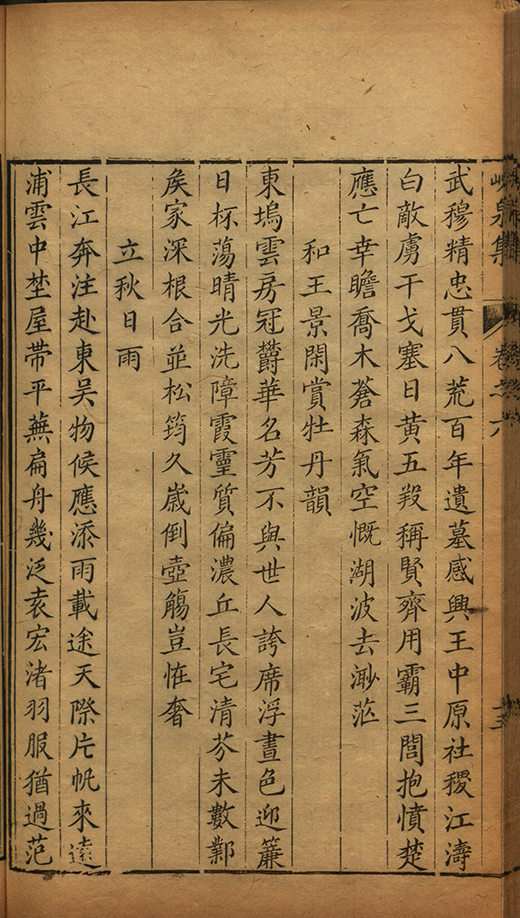 泉集 卷之六
武穆精忠貫八荒百年遺墓感興王中原社稷江濤
白敵虜干戈塞日黄五羖稱賢齊用霸三閭抱憤楚
應亡幸瞻喬木蒼森氣空慨湖波去渺茫
和王景閑賞牡丹韻
東塢雲房冠欝華名芳不與世人誇席浮晝色迎簾
日杯蕩晴光洗障霞靈質偏濃丘長宅清芬未數鄴
矦家深根合並松筠久歲倒壺觴豈恠奢
立秋日雨
長江奔注赴東吳物候應添雨載途天際片帆來遠
浦雲中埜屋帶平蕪扁舟幾泛袁宏渚羽服猶過范